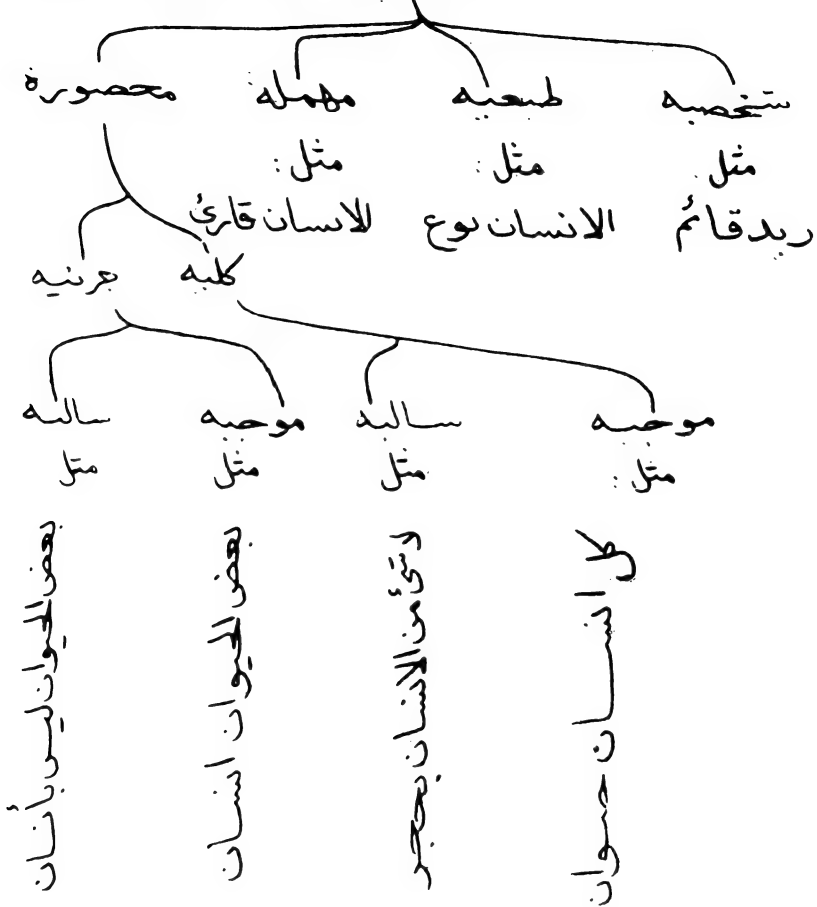 شخصيه
طبيعيه
مهمله
محصورة
مثل
مثل :
مثل :
زيد قائم
الانسان نوع
الانسان قارئ
كليه
جزئيه
موجبه
سالبه
موجبه
سالبه
مثل :
مثل
مثل
مثل
كل انسان حيوان
لا شئ من الانسان بحجر
بعض الحيوان انسان
بعض الحيوان ليس بأنسان